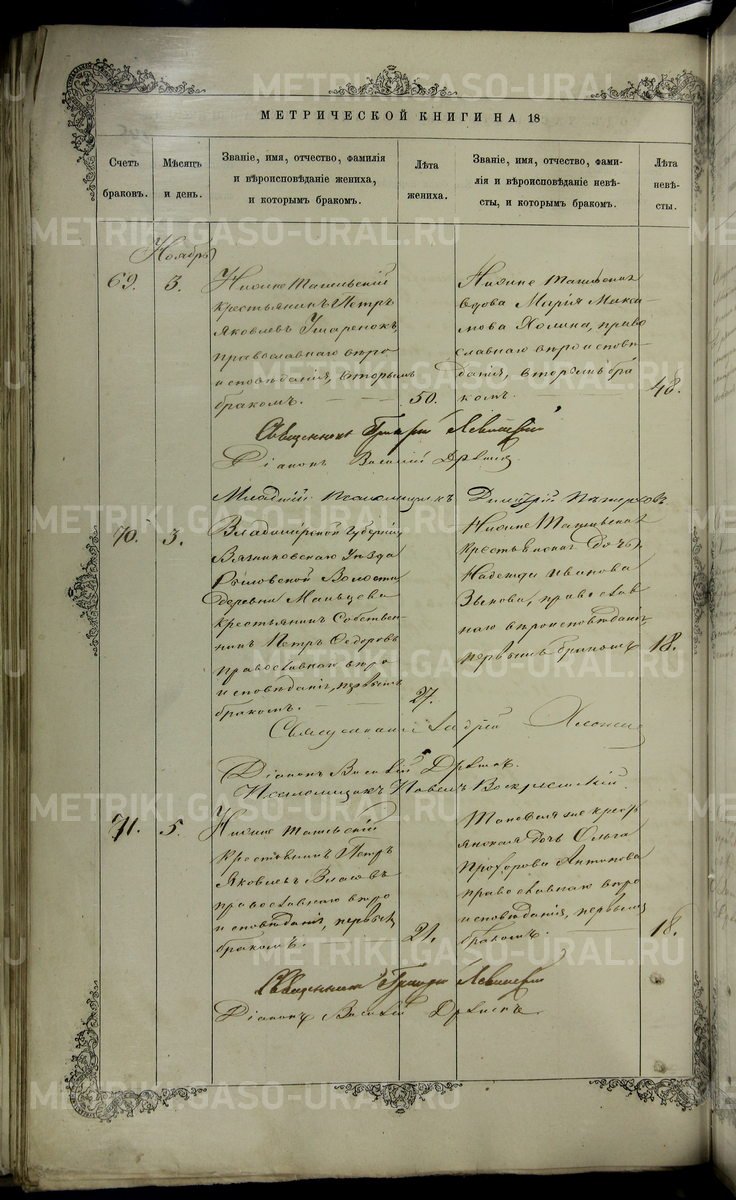 МЕТРИЧЕСКОЙ КНИГИ НА 18
Счетъ браковъ.
Мѣсяцъ и день.
Званіе, имя, отчество, фамилія
и вѣроисповѣданіе жениха,
и которымъ бракомъ.
Лѣта жениха.
Званіе, имя, отчество, фами-
лія и вѣроисповѣданіе невѣ-
сты, и которымъ бракомъ.
Лѣта
невѣ-
сты.
Ноябрь
69. 3.
Нижне Тагильскій
крестьянинъ Петръ
Яковлевъ
православнаго вѣро
исповѣданія, вторымъ
бракомъ. 50.
Нижне Тагильская
вдова Марія Макси-
мова Холина, право
славнаго вѣроисповѣ-
данія, вторымъ бра
комъ. 48.
Священникъ Григорій Левитскій
Діаконъ Василій
Младшій Псаломщикъ Димитрій
70. 3.
Владимірской Губерніи
Вязниковскаго Уѣзда
Рыловской Волости
деревни Мальцева
крестьянинъ Собствен-
никъ Петръ Ѳедоровъ
православнаго вѣро
исповѣданія, первымъ
бракомъ. 27.
Нижне Тагильская
крестьянская дочь
Надежда Иванова
Зыкова, православ
наго вѣроисповѣданія
первымъ бракомъ 18.
Священникъ Андрей
Діаконъ Василій
Псаломщикъ Павелъ Воскресенскій.
71. 5.
Нижне Тагильскій
крестьянинъ Петръ
Яковлевъ Власовъ
православнаго вѣро
исповѣданія, первымъ
бракомъ. 21.
Таковая же кресть
янская дочь Ольга
Прохорова Антипова
православнаго вѣро
исповѣданія, первымъ
бракомъ. 18.
Священникъ Григорій Левитскій
Діаконъ Василій
METRIKI.GASO-URAL.RU